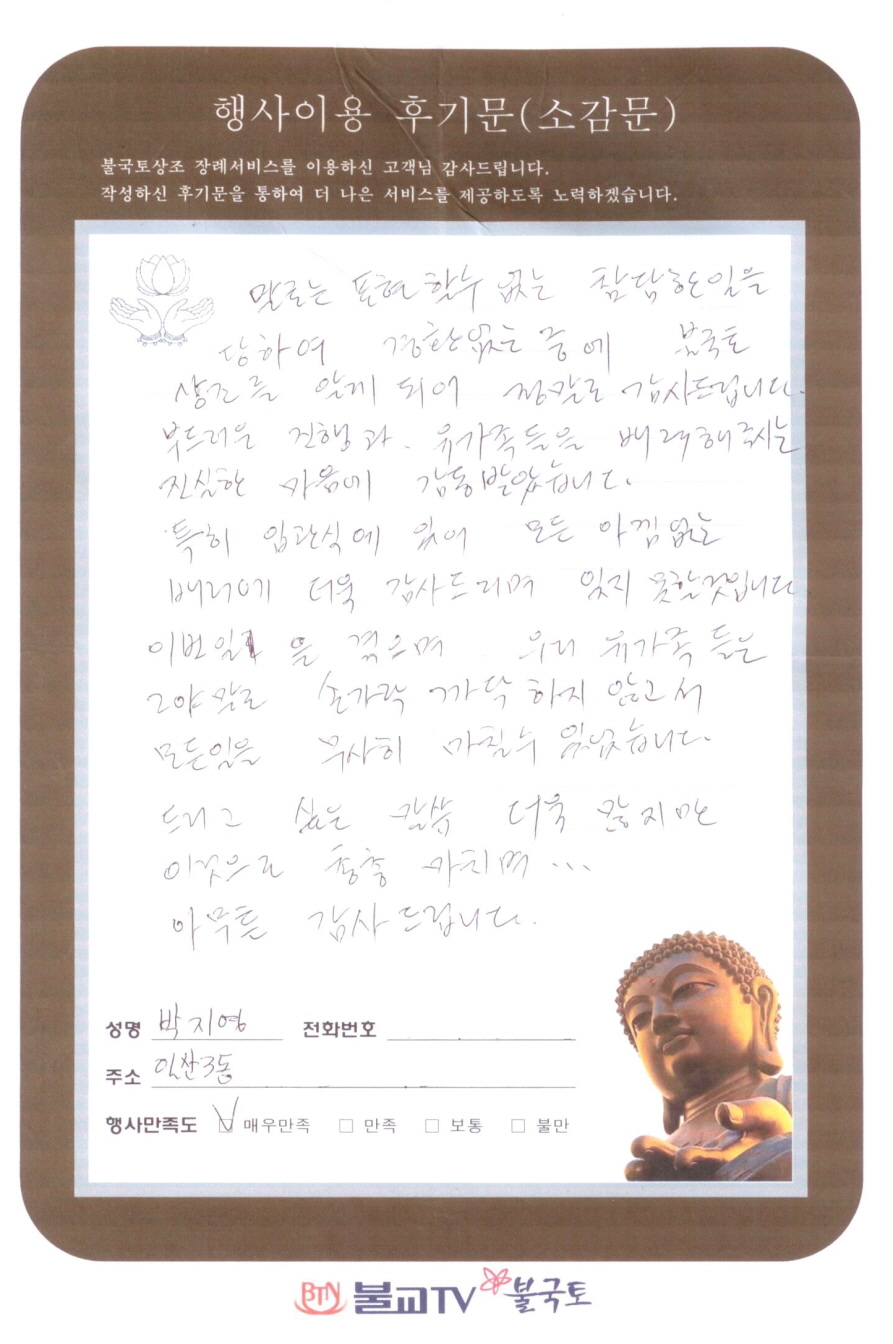 행사이용 후기문(소감문)
불국토상조 장례서비스를 이용하신 고객님 감사드립니다.
작성하신 후기문을 통하여 더 나은 서비스를 제공하도록 노력하겠습니다.
말로는 표현할수 없는 참담한일을
당하여 경황없는 중에 불국토
상조를 알게 되어 정말로 감사드립니다.
부드러운 진행과. 유가족들을 배려해주시는
진실한 마음에 감동받았습니다.
특히 입관식에 있어 모든 아낌없는
배려에 더욱 감사드리며 잊지 못할것입니다
이번일 을 겪으며 우리 유가족들은
그야말로 손가락 까닥하지 않고서
모든일을 무사히 마칠수 있었습니다.
드리고 싶은 말씀 더욱 많지만
이것으로 총총 마치며 ...
아무튼 감사드립니다.
성명 박지영 전화번호
주소 일산3동
행사만족도 매우만족 만족 보통 불만
BTN 불교TV 불국토